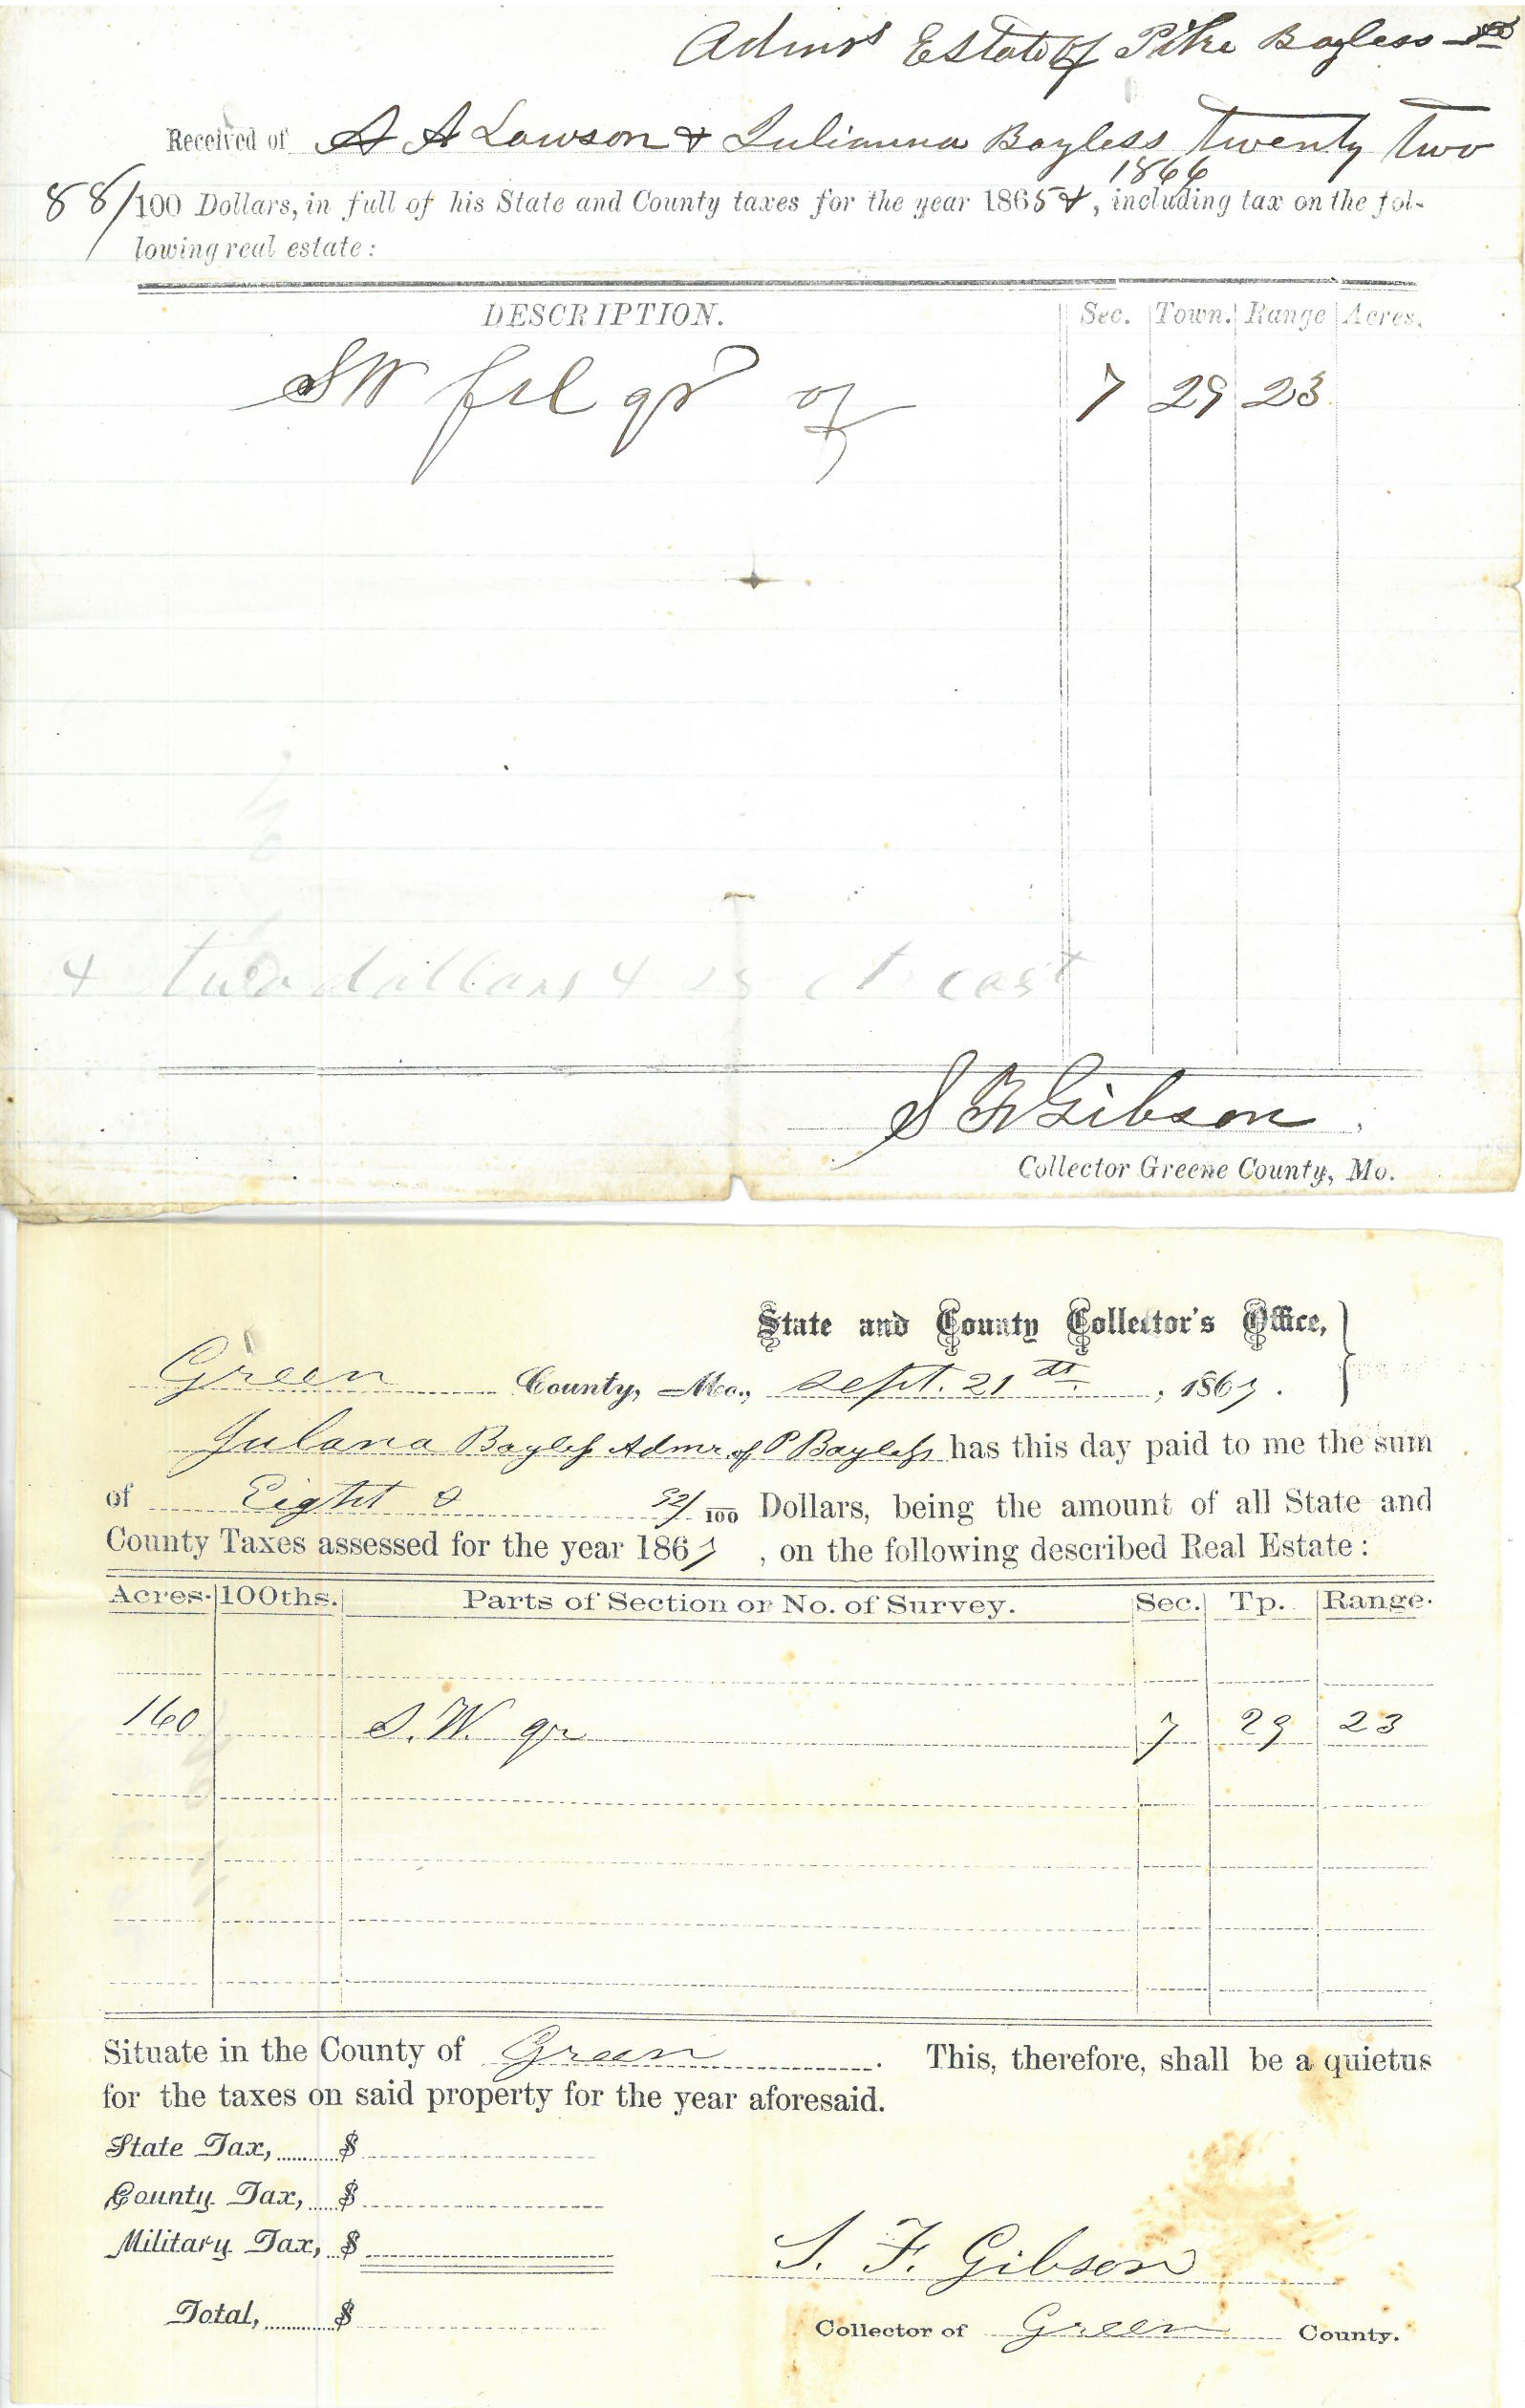 Admrs Estate of Pike Bayless
Received of A A Lawson & Julianna Bayless twenty two
1866
88/100 Dollars, in full of his State and County taxes for the year 1865 &, including tax on the fol-
lowing real estate:
DESCRIPTION. Sec. Town. Range Acres.
SW frl qr of 7 29 23
& two dollars & 25 ct cost
S F Gibson
Collector Greene County, Mo.
State and County Collector's Office,
Green County, Mo., Sept. 21st, 1867.
Julana Bayless Admr. of P Bayless has this day paid to me the sum
of Eight & 92/100 Dollars, being the amount of all State and
County Taxes assessed for the year 1867, on the following described Real Estate:
Acres. 100ths. Parts of Section or No. of Survey. Sec. Tp. Range.
160 S.W. qr 7 29 23
Situate in the County of Green. This, therefore, shall be a quietus
for the taxes on said property for the year aforesaid.
State Tax, $
County Tax, $
Military Tax, $
Total, $
S. F. Gibson
Collector of Green County.